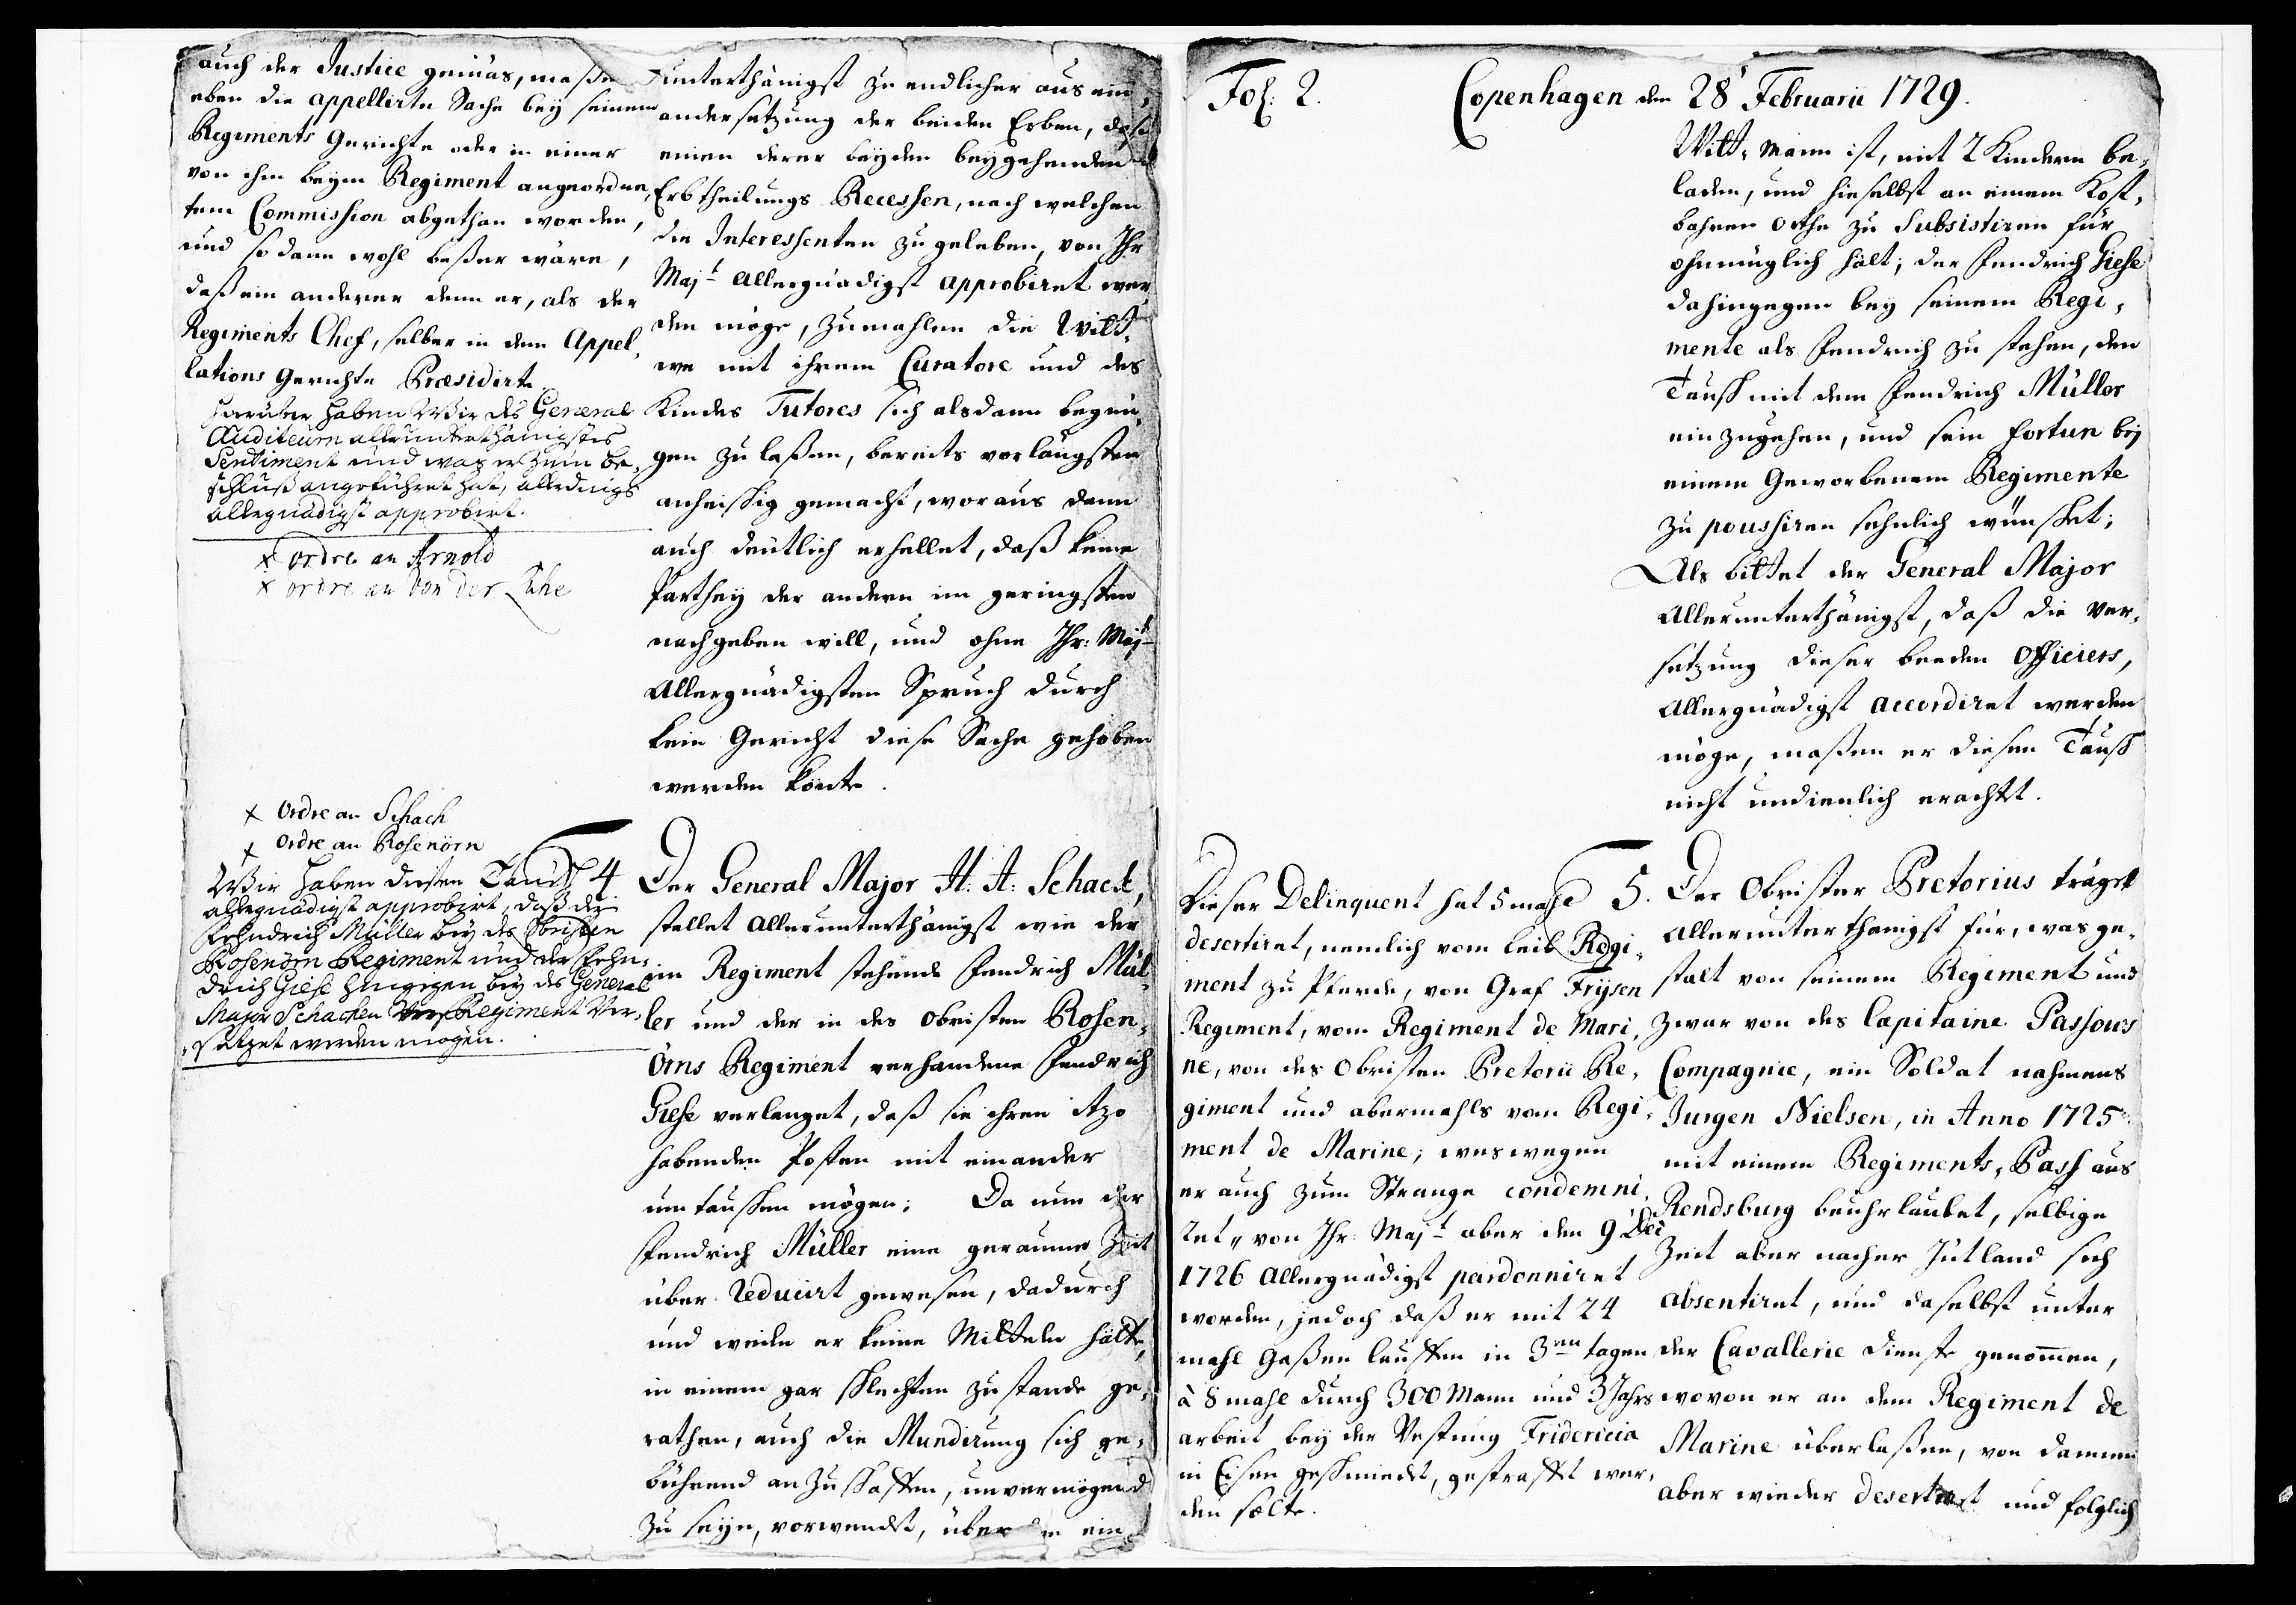 auch der Justice gemäs, maßen
eben die appellirte Sache bey seinem
Regiments Gerichte oder in einer
von ihm beym Regiment angeordne,
tem Commission abgethan worden,
und so dann wohl beßer wäre,
daß ein anderer denn er, als der
Regiments Chef, selber in dem Appel,
lations Gerichte Præsidirte.
Hierüber haben Wir des General
Auditeurn allerunterthänigstes
Sentiment und was er zum Be,
schluß angeführet hat, allerdings
allergnädigst approbirt.
x ordre an Arnold
x ordre an von der Lühe
x Ordre an Schach
x Ordre an Rosenörn
Wir haben diesen Tausch
allergnädigst approbirt, daß der
Fehndrich Müller bey des Obristen
Rosenörn Regiment und der Fehn,
drich Giese hingegen bey des General
Major Schacken Regiment Ver,
setzet werden mögen.
unterthänigst zu endlicher aus ein,
andersetzung der beiden Erben, daß
einen derer beyden beygehenden
Erbtheilungs Recessen, nach welchen
die Interessenten zu geleben, von Ihr
Majt allergnädigst approbiret wer
den möge, zumahlen die Witt,
we mit ihrem Curatore und des
Kindes Tutores sich alsdann begnü,
gen zu laßen, bereits vorlängsten
anheischig gemacht, woraus dann
auch deutlich erhellet, daß keine
Parthey der andern im geringsten
nachgeben will, und ohne Ihr: Majt
Allergnädigsten Spruch durch
kein Gericht diese Sache gehoben
werden könte.
4 Der General Major H: A: Schack,
stellet allerunterthänigst wie der
im Regiment stehende Fendrich Mül
ler und der in des Obristen Rosen,
örns Regiment verhandene Fendrich
Giese verlanget, daß sie ihren itzo
habenden Posten mit einander
umtauschen mögen; Da nun der
Fendrich Müller eine geraume Zeit
über reducirt gewesen, dadurch
und weile er keine Mitteln hätte,
in einem gar schlechten zustande ge,
rathen, auch die Mundirung sich ge,
bührend anzuschaffen, unvermögend
zu seyn, vorwendet, über ein
Fol: 2. Copenhagen den 28t Februarii 1729.
Witt, Mann ist, mit 2 Kindern be,
laden, und hieselbst an einem Kost,
bahren Orthe zu Subsistiren für
ohnmüglich hält; der Fendrich Giese
dahingegen bey seinem Regi,
mente als Fendrich zu stehen, den
Tausch mit dem Fendrich Müller
einzugehen, und sein fortun bey
einem Geworbenem Regimente
zu poussiren sehnlich wünschet;
Als bittet der General Major
Allerunterthänigst, daß die Ver,
setzung dieser beeden Officiers,
Allergnädigst accordiret werden
möge, maßen er diesen Tausch
nicht undienlich erachtet.
Dieser Delinquent hat 5 mahl
desertiret, nemlich vom Leib Regi,
ment zu Pferde, von Graf Frijsen
Regiment, vom Regiment de Mari,
ne, von des Obristen Pretorii Re,
giment und abermahls vom Regi,
ment de Marine; weswegen
er auch zum Strange condemni,
ret, von Ihr: Majt aber den 9 Dec
1726 allergnädigst pardonniret
worden, jedoch daß er mit 24
mahl Gaßen lauffen in 3en tagen
à 8 mahl durch 300 Mann und 3 Jahrs
arbeit bey der Vestung Fridericia
in Eisen geschmiedet, gestrafft wer,
den solte.
5. Der Obrister Pretorius träget
Allerunterthänigst für, was ge,
stalt von seinem Regiment und
zwar von des Capitaine Passows
Compagnie, ein Soldat nahmens
Jurgen Nielsen, in Anno 1725
mit einem Regiments, Pass aus
Rendsburg beuhrlaubet, selbige
Zeit aber nacher Jütland sich
absentiret, und daselbst unter
der Cavallerie dienste genommen,
wovon er an dem Regiment de
Marine überlaßen, von dannen
aber wieder desertiret und folglich